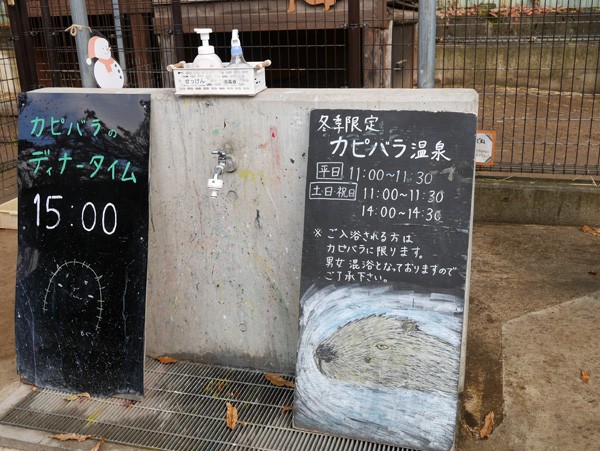 カピバラの
ディナータイム
15:00
せっけん
冬季限定
カピバラ温泉
平日 11:00~11:30
土日・祝日 11:00~11:30
14:00~14:30
※ ご入浴される方は
カピバラに限ります。
男女混浴となっておりますので
ご了承下さい。